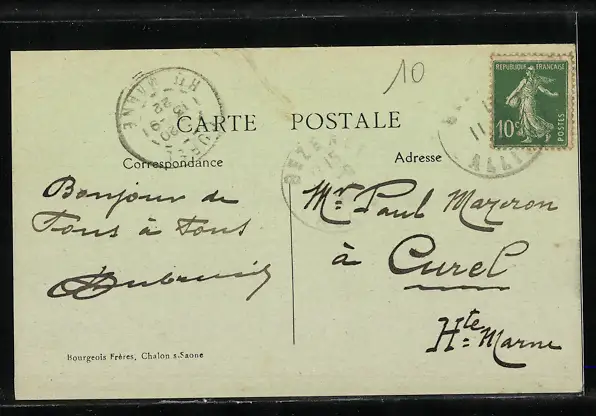 10
REPUBLIQUE FRANÇAISE
10c
POSTES
CARTE POSTALE
Correspondance
Adresse
Bonjour de
Tous à Tous
Mr Paul Mazeron
à Curel
Hte Marne
Bourgeois Frères, Chalon s-Saone